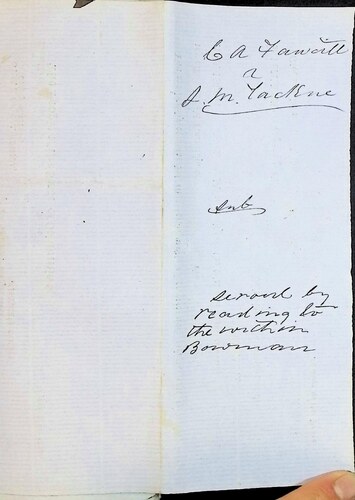 C A Fawcett
v
J. M. Tackne
sub
served by
reading to
the within
Bowman